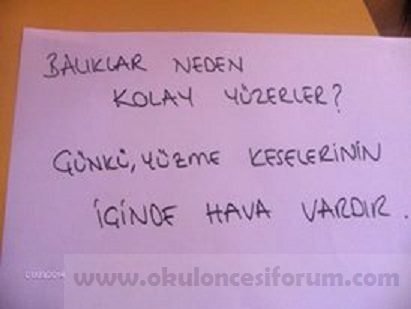 BALIKLAR NEDEN
KOLAY YÜZERLER?
ÇÜNKÜ, YÜZME KESELERİNİN
İÇİNDE HAVA VARDIR.
www.okuloncesiforum.com